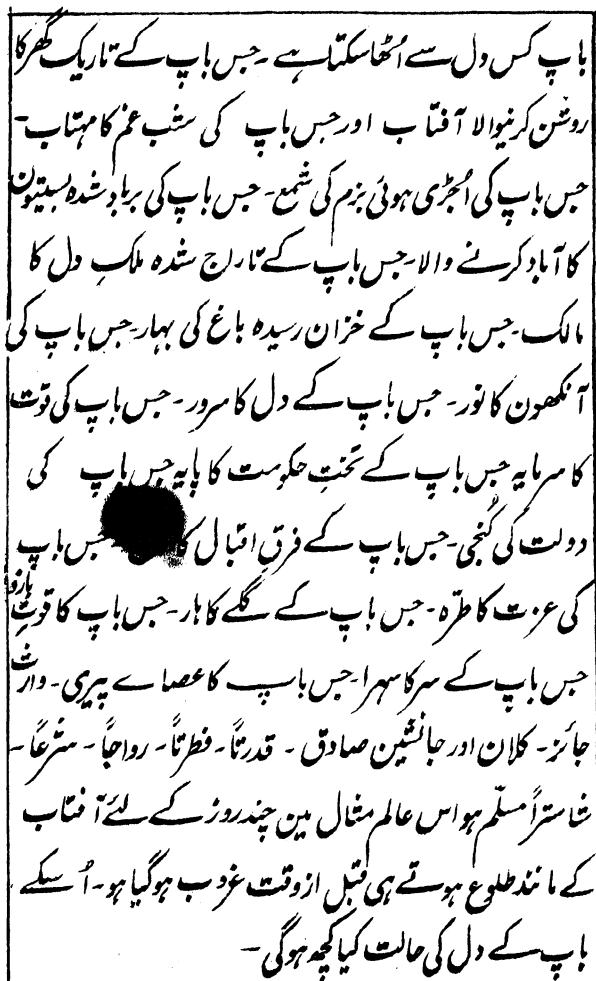 باپ کس دل سے اُٹھا سکتا ہے ۔ جس باپ کے تاریک گھر کا
روشن کرنیوالا آفتاب اور جس باپ کی شب غم کا مہتاب ۔
جس باپ کی اُجڑی ہوئی بزم کی شمع ۔ جس باپ کی برباد شدہ بستیون
کا آباد کرنے والا ۔ جس باپ کے تاراج شدہ ملکِ دل کا
مالک ۔ جس باپ کے خزان رسیدہ باغ کی بہار ۔ جس باپ کی
آنکھون کا نور ۔ جس باپ کے دل کا سرور ۔ جس باپ کی قوت
کا سرمایہ جس باپ کے تختِ حکومت کا پایہ جس باپ کی
دولت کی کُنجی ۔ جس باپ کے فرقِ اقبال کا ۔ جس باپ
کی عزت کا طرّہ ۔ جس باپ کے گلے کا ہار ۔ جس باپ کا قوتِ بازو
جس باپ کے سر کا سہرا ۔ جس باپ کا عصاے پیری ۔ وارث
جائز ۔ کلان اور جانشین صادق ۔ قدرتاً ۔ فطرتاً ۔ رواجاً ۔ شرعاً ۔
شاستراً مسلّم ہو اس عالم مثال مین چند روز کے لئے آفتاب
کے مانند طلوع ہوتے ہی قبل از وقت غروب ہو گیا ہو ۔ اُسکے
باپ کے دل کی حالت کیا کچھ ہوگی ۔